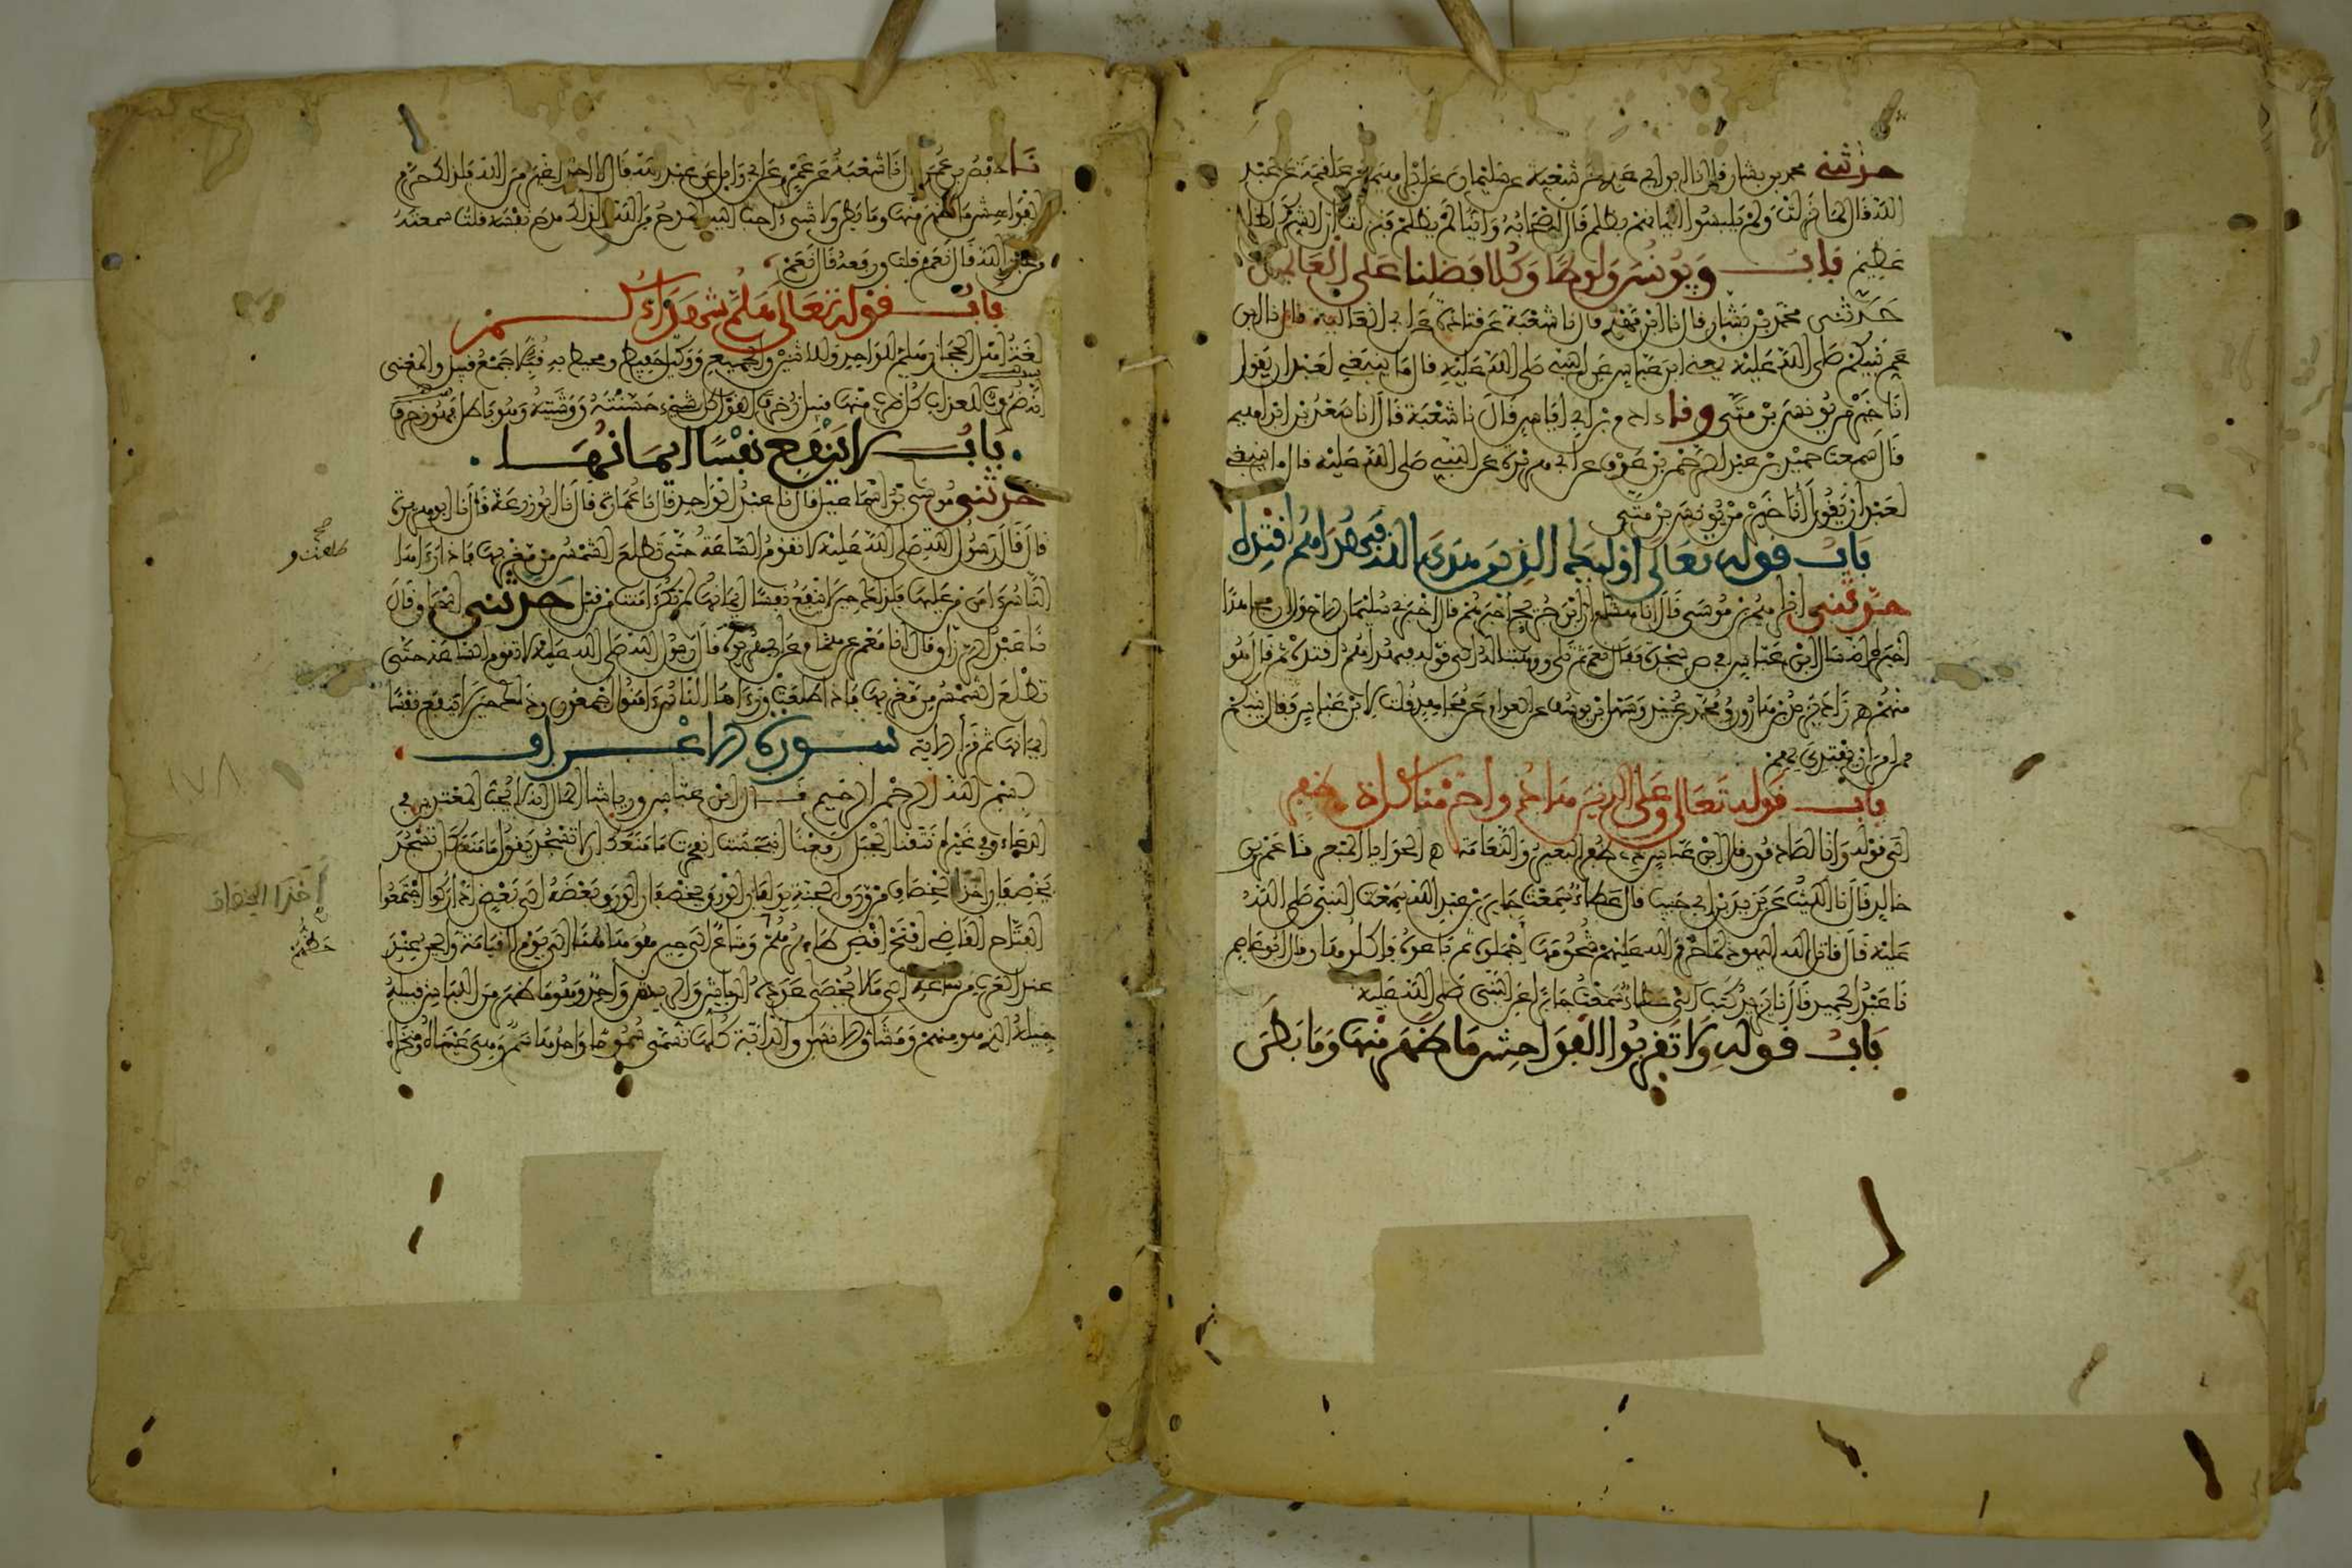 حدثني محمد بن بشار قال نا ابن ابي عدي عن شعبة عن سليمان عن ابراهيم عن علقمة عن عبد
الله قال لما نزلت ولم يلبسوا ايمانهم بظلم قال اصحابه وأينا لم يظلم فنزلت ان الشرك لظلم
عظيم باب ويونس ولوطا وكلا فضلنا على العالمين
حدثني محمد بن بشار قال نا ابن مهدي قال نا شعبة عن قتادة عن ابي العالية قال نا ابن
عم نبيكم صلى الله عليه يعني ابن عباس عن النبي صلى الله عليه قال ما ينبغي لعبد ان يقول
انا خير من يونس بن متى ونا ءادم بن ابي اياس قال نا شعبة قال انا سعد بن ابراهيم
قال سمعت حميد بن عبد الرحمن بن عوف عن ابي هريرة عن النبي صلى الله عليه قال ما ينبغي
لعبد ان يقول أنا خير من يونس بن متى
باب قوله تعالى اولئك الذين هدى الله فبهداهم اقتده
حدثني ابراهيم بن موسى قال انا هشام ان ابن جريج اخبرهم قال اخبرني سليمان الاحول ان مجاهدا
اخبره انه سال ابن عباس افي ص سجدة فقال نعم ثم تلى ووهبنا له الى قوله فبهداهم اقتده ثم قال هو
منهم زاد يزيد بن هارون ومحمد بن عبيد وسهل بن يوسف عن العوام عن مجاهد قلت لابن عباس فقال نبيكم
ممن امر ان يقتدي بهم
باب قوله تعالى وعلى الذين هادوا حرمنا كل ذي ظفر
الى قوله وانا لصادقون قال ابن عباس كل ذي ظفر البعير والنعامة الحوايا المبعر نا عمرو بن
خالد قال نا الليث عن يزيد بن ابي حبيب قال عطاء سمعت جابر بن عبد الله سمعت النبي صلى الله
عليه قال قاتل الله اليهود لما حرم الله عليهم شحومها اجملوه ثم باعوه فاكلوها وقال ابو عاصم
نا عبد الحميد قال نا يزيد كتب الي عطاء سمعت جابرا عن النبي صلى الله عليه
باب قوله ولا تقربوا الفواحش ما ظهر منها وما بطن
نا حفص بن عمر قال نا شعبة عن عمرو عن ابي وايل عن عبد الله قال لا احد اغير من الله فلذلك حرم
الفواحش ما ظهر منها وما بطن ولا شيء احب اليه المدح من الله لذلك مدح نفسه قلت سمعته
من عبد الله قال نعم قلت ورفعه قال نعم
باب قوله تعالى هلم شهداءكم
لغة اهل الحجاز هلم للواحد والاثنين والجميع وكيل حفيظ ومحيط به قبلا جمع قبيل والمعنى
انه ضروب للعذاب كل ضرب منها قبيل زخرف القول كل شيء حسنته ووشيته وهو باطل فهو زخرف
باب لا ينفع نفسا ايمانها
حدثني موسى بن اسماعيل قال نا عبد الواحد قال نا عمارة قال نا ابو زرعة قال نا ابو هريرة
قال قال رسول الله صلى الله عليه لا تقوم الساعة حتى تطلع الشمس من مغربها فاذا رءاها
الناس ءامن من عليها فذلك حين لا ينفع نفسا ايمانها لم تكن ءامنت من قبل حدثني اسحاق قال
نا عبد الرزاق قال انا معمر عن همام عن ابي هريرة قال رسول الله صلى الله عليه لا تقوم الساعة حتى
تطلع الشمس من مغربها فاذا طلعت ورءاها الناس ءامنوا اجمعون وذلك حين لا ينفع نفسا
ايمانها ثم قرأ الاية سورة الاعراف
بسم الله الرحمن الرحيم قال ابن عباس ورياشا المال انه لا يحب المعتدين في
الدعاء وفي غيره نتقنا الجبل رفعنا انبجست انفجرت ما منعك ان لا تسجد يقول ما منعك ان تسجد
يخصفان اخذا الخصاف من ورق الجنة يؤلفان الورق يخصفان الورق بعضه الى بعض اداركوا اجتمعوا
الفتاح القاضي افتح اقض طايرهم حظهم ومتاع الى حين هو هاهنا الى يوم القيامة والحين عند
العرب من ساعة الى ما لا يحصى عدده الرياش والريش واحد وهو ما ظهر من اللباس قبيله
جيله الذي هو منهم ومشاق الانسان والدابة كلها تسمى سموما واحدها سم وهي عيناه ومنخراه
طلعت و
صح
اخذا الخصاف
حظهم
١٧٨